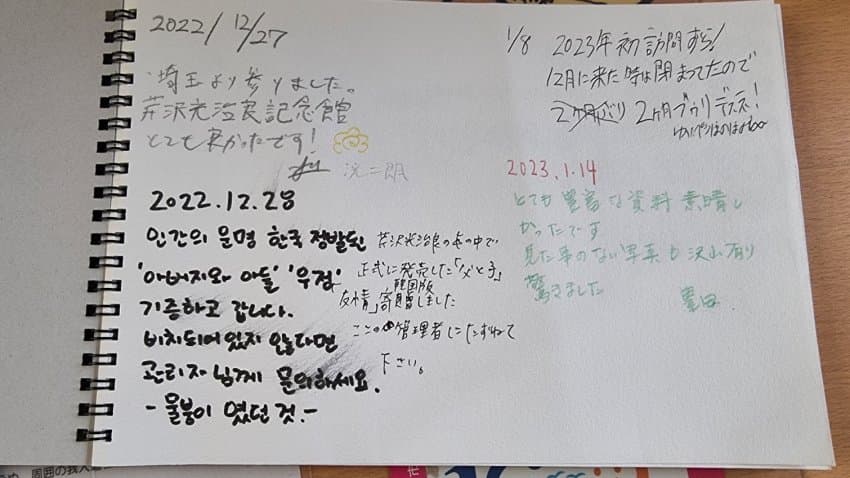 2022/12/27
埼玉より参りました。
芹沢光治良記念館
とても良かったです!
2022.12.28
인간의 운명 한국 정발된
'아버지와 아들' '우정'
기증하고 갑니다.
비치되어 있지 않다면
관리자님께 문의하세요.
-물붕이 였던 것.-
芹沢光治良の本の中で
正式に発売した「父と子」
韓国版
友情」寄贈しました
ここの管理者にたずねて
下さい。
1/8 2023年初訪問ずら!
12月に来た時は閉まってたので
2ヶ月ぶり 2ヶ月ブゥリデスネ!
2023.1.14
とても豊富な資料素晴し
かったです
見た事のない写真も沢山有り
驚きました
豊田
周囲の